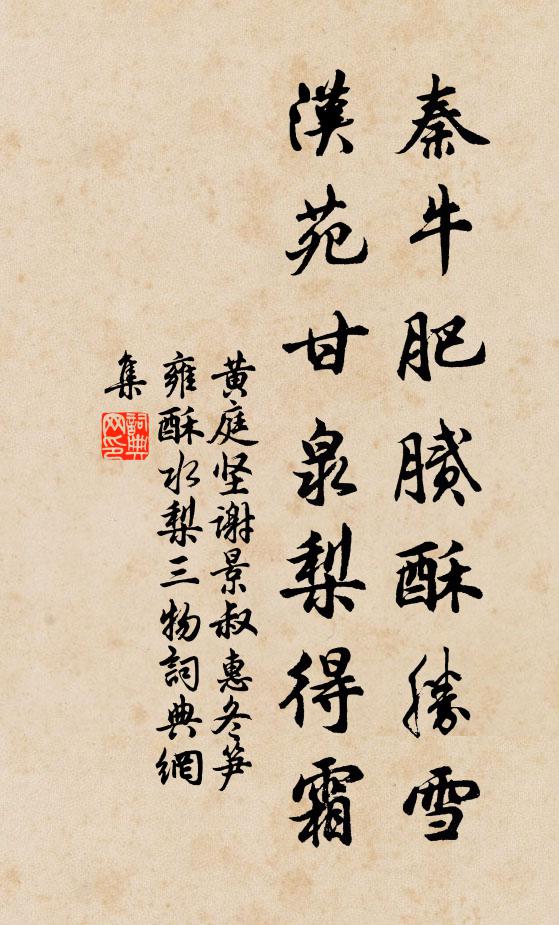 秦牛肥膩酥勝雪
漢苑甘泉梨得霜
黄庭坚謝景叔惠冬笋
雍酥水梨三物詞典網
集
詞典
网印